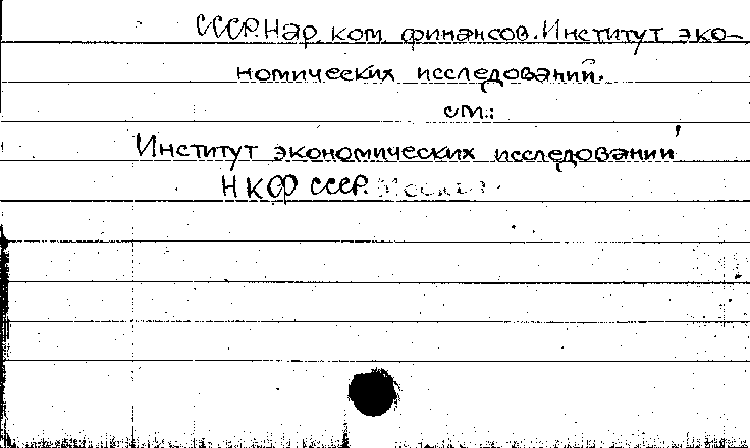 СССР. Нар. ком. финансов. Институт эко-
номических исследований.
см.:
Институт экономических исследований
НКФ СССР. Москва.